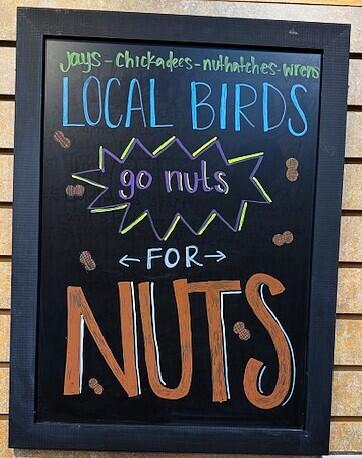 jays - chickadees - nuthatches - wrens
LOCAL BIRDS
go nuts
← FOR →
NUTS